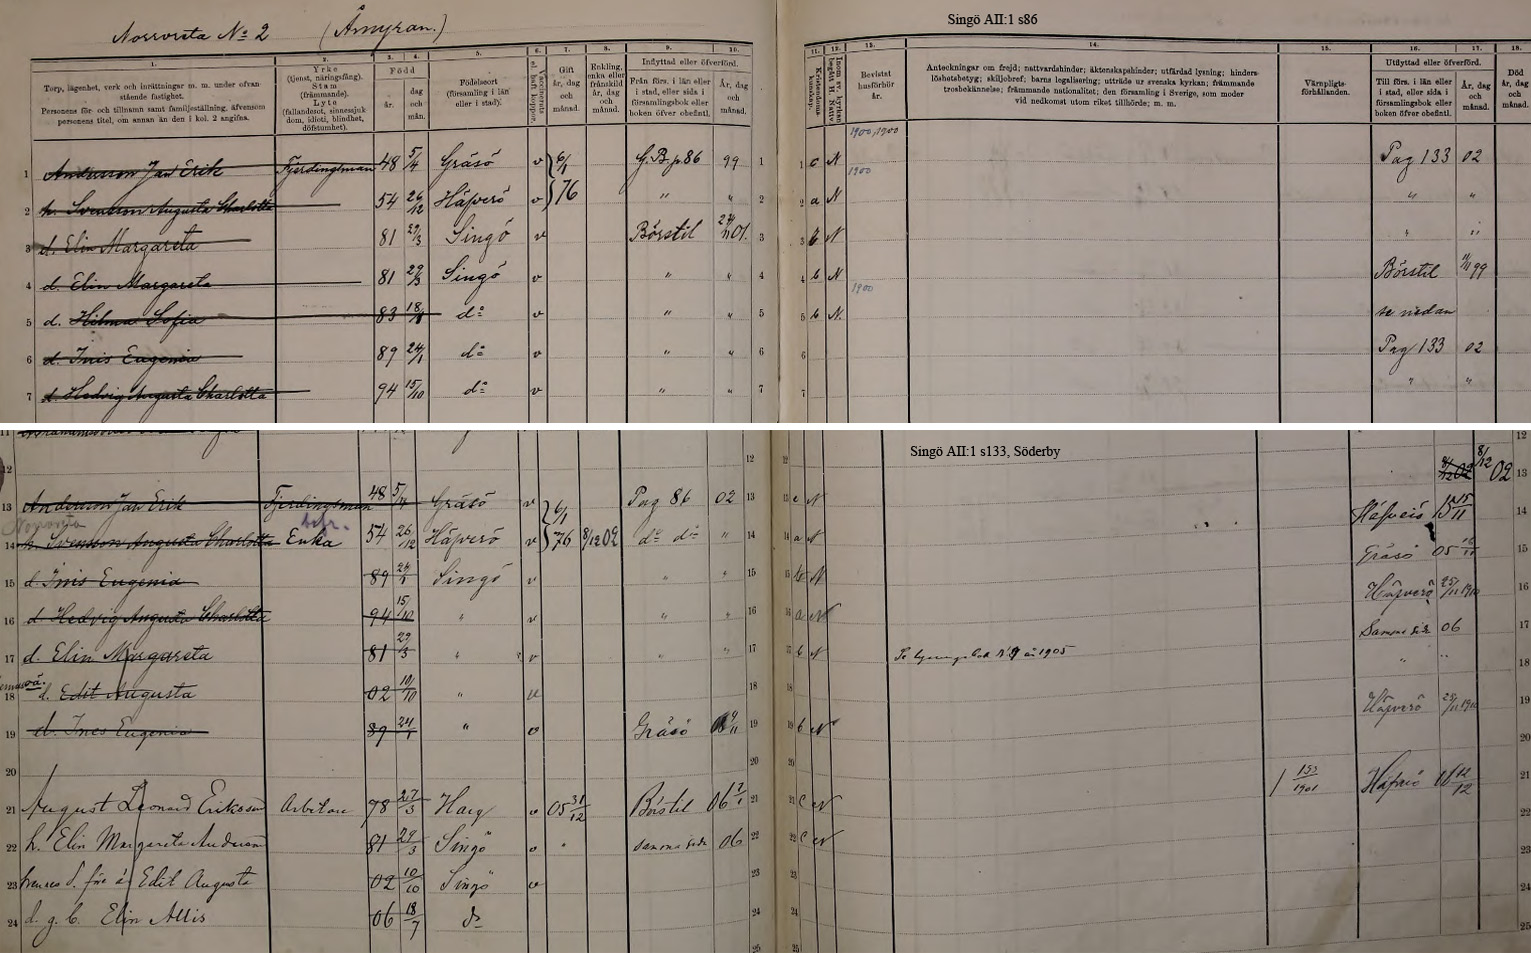 Singö AII:1 s86
Norrvreta No 2 (Åmyran.)
1. 2. 3. 4. 5. 6. 7. 8. 9. 10. 11. 12. 13. 14. 15. 16. 17. 18.
Torp, lägenhet, verk och inrättningar m. m. under ofvanstående fastighet.
Personens för- och tillnamn samt familjeställning, äfvensom personens titel, om annan än den i kol. 2 angifna.
Yrke (tjenst, näringsfång). Stam (främmande). Lyte (fallandesot, sinnessjukdom, idioti, blindhet, döfstumhet).
Född
år.
dag och mån.
Födelseort (församling i län eller i stad).
Gift år, dag och månad.
Enkling, enka eller frånskild år, dag och månad.
Inflyttad eller öfverförd.
Från förs. i län eller i stad, eller sida i församlingsbok eller boken öfver obefintl.
År, dag och månad.
Bevistat husförhör år.
Anteckningar om frejd; nattvardshinder; äktenskapshinder; utfärdad lysning; hinderslöshetsbetyg; skiljobref; barns legalisering; utträde ur svenska kyrkan; främmande trosbekännelse; främmande nationalitet; den församling i Sverige, som moder vid nedkomst utom riket tillhörde; m. m.
Värnpligtsförhållanden.
Utflyttad eller öfverförd.
Till förs. i län eller i stad, eller sida i församlingsbok eller boken öfver obefintl.
År, dag och månad.
Död år, dag och månad.
1900, 1900
1 Andersson Jan Erik Fjerdingsman 48 5/4 Gräsö v 6/1 G.B.p86 99 1 c N 1900 Pag 133 02
2 h. Svensson Augusta Charlotta 54 26/12 Häfverö v 76 " " 2 a N " "
3 d. Elin Margareta 81 29/3 Singö v Börstil 01. 3 b N " "
4 d. Elin Margareta 81 29/3 Singö v " " 4 b N Börstil 99
1900
5 d. Hilma Sofia 83 do v " " 5 b N. se nedan
6 d. Inis Eugenia 89 24/1 do v " " 6 Pag 133 02
7 d. Hedvig Augusta Charlotta 94 15/10 do v " " 7 " "
Singö AII:1 s133, Söderby
12
13 Andersson Jan Erik Fjerdingsman 48 5/4 Gräsö v 6/1 Pag 86 02 13 c N 8/12 02
14 h. Svensson Augusta Charlotta Enka 54 26/12 Häfverö v 76 8/12 02 do do " 14 a N
15 d. Inis Eugenia 89 24/1 Singö v " " 15 b N Gräsö 05
16 d. Hedvig Augusta Charlotta 94 15/10 " v " " 16 a N Häfverö
17 d. Elin Margareta 81 29/3 " v " " 17 b N Samma sida 06
18 d. Edit Augusta 02 10/10 " v 18 " "
19 d. Ines Eugenia 89 24/1 " v Gräsö 19 b N Häfverö
20
21 August Leonard Eriksson Arbetare 78 27/3 Harg v 05 31/12 Börstil 06 21 c N
22 h. Elin Margareta Andersson 81 29/3 Singö v " samma sida 06 22 c N
23 hennes d. före ä. Edit Augusta 02 10/10 Singö v 23
24 d. g. b. Elin Allis 06 18/7 do 24
25